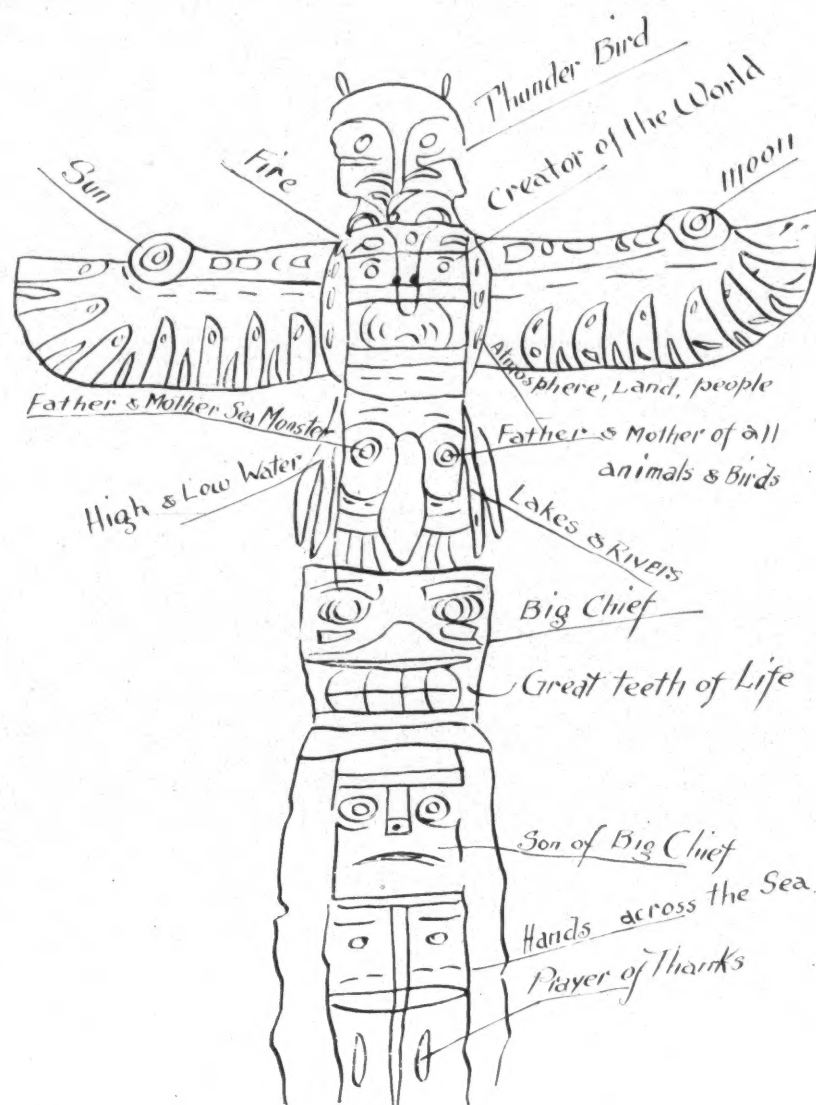 Thunder Bird
Creator of the World
Sun
Fire
moon
Atmosphere, Land, people
Father & Mother Sea Monster
Father & Mother of all
animals & Birds
High & Low Water
Lakes & Rivers
Big Chief
Great teeth of Life
Son of Big Chief
Hands across the Sea
Prayer of Thanks